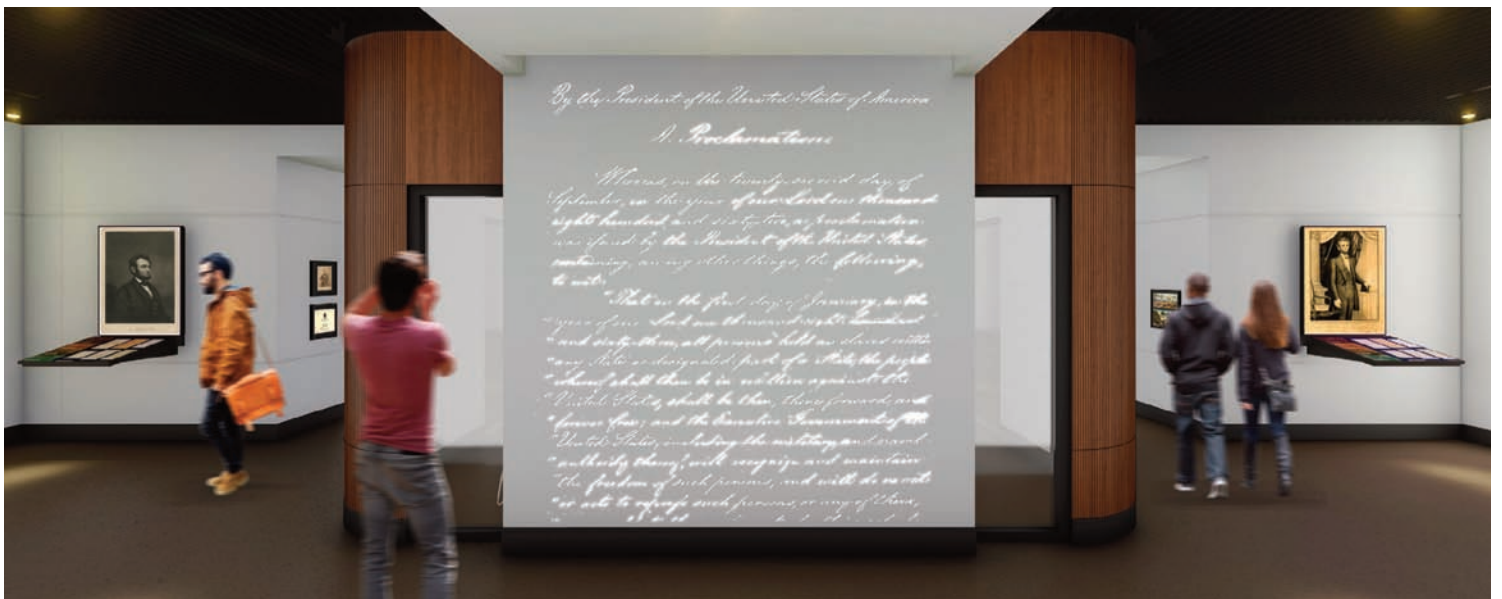 By the President of the United States of America
A Proclamation
Whereas, on the twenty-second day of
September, in the year of our Lord one thousand
eight hundred and sixty two, a proclamation
was issued by the President of the United States,
containing, among other things, the following,
to wit:
"That on the first day of January, in the
"year of our Lord one thousand eight hundred
"and sixty-three, all persons held as slaves within
"any State or designated part of a State, the people
"whereof shall then be in rebellion against the
"United States, shall be then, thenceforward, and
"forever free; and the Executive Government of the
"United States, including the military and naval
"authority thereof, will recognize and maintain
"the freedom of such persons, and will do no act
"or acts to repress such persons, or any of them,